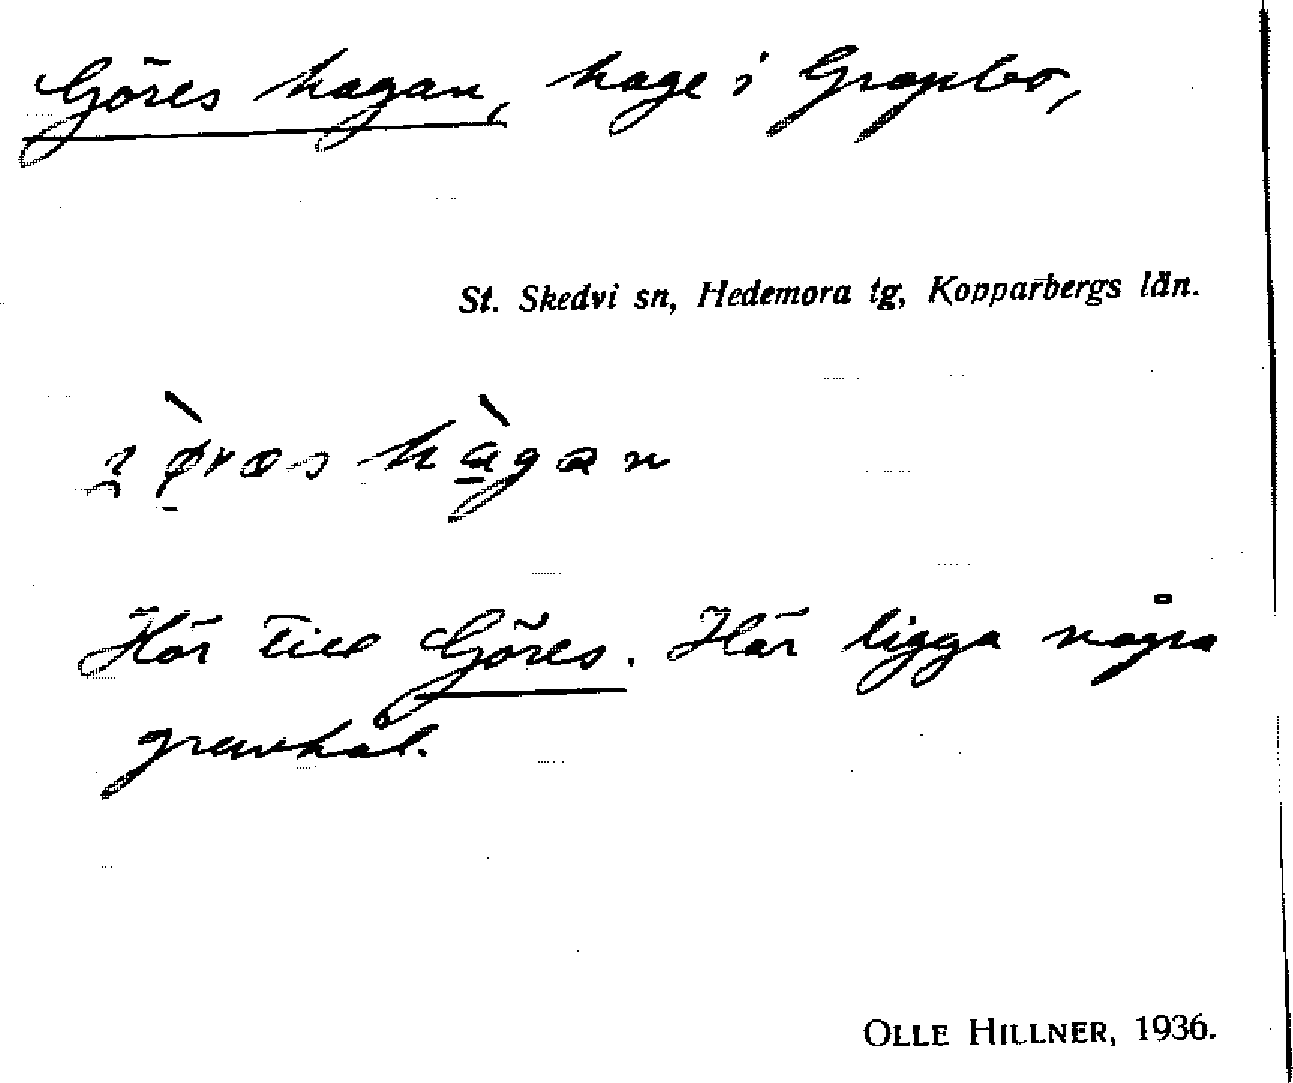 Göres hagan, hage i Gropbo,
St. Skedvi sn, Hedemora tg, Kopparbergs län.
Hör till Göres. Här ligga några
gruvhål.
OLLE HILLNER, 1936.